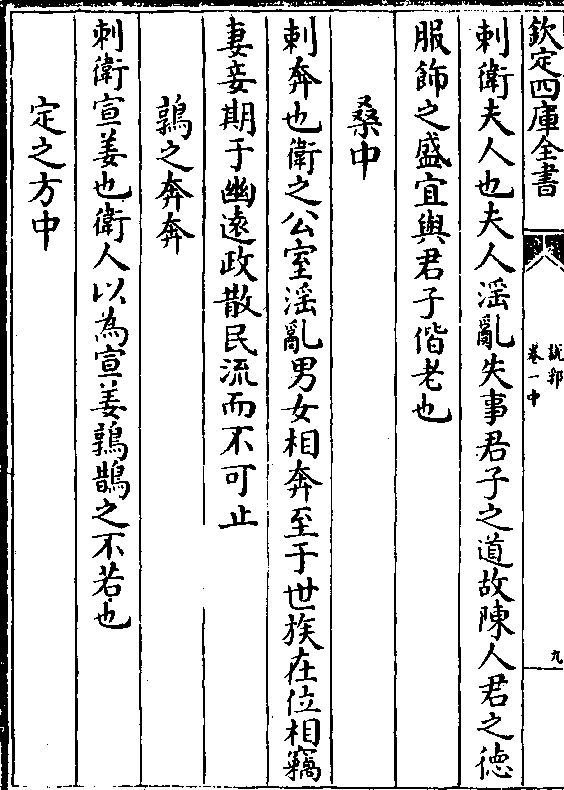 欽定四庫全書
說郛
卷一中
九
刺衛夫人也夫人淫亂失事君子之道故陳人君之徳
服飾之盛宜與君子偕老也
桑中
刺奔也衛之公室淫亂男女相奔至于世族在位相竊
妻妾期于幽遠政散民流而不可止
鶉之奔奔
刺衛宣姜也衛人以為宣姜鶉鵲之不若也
定之方中